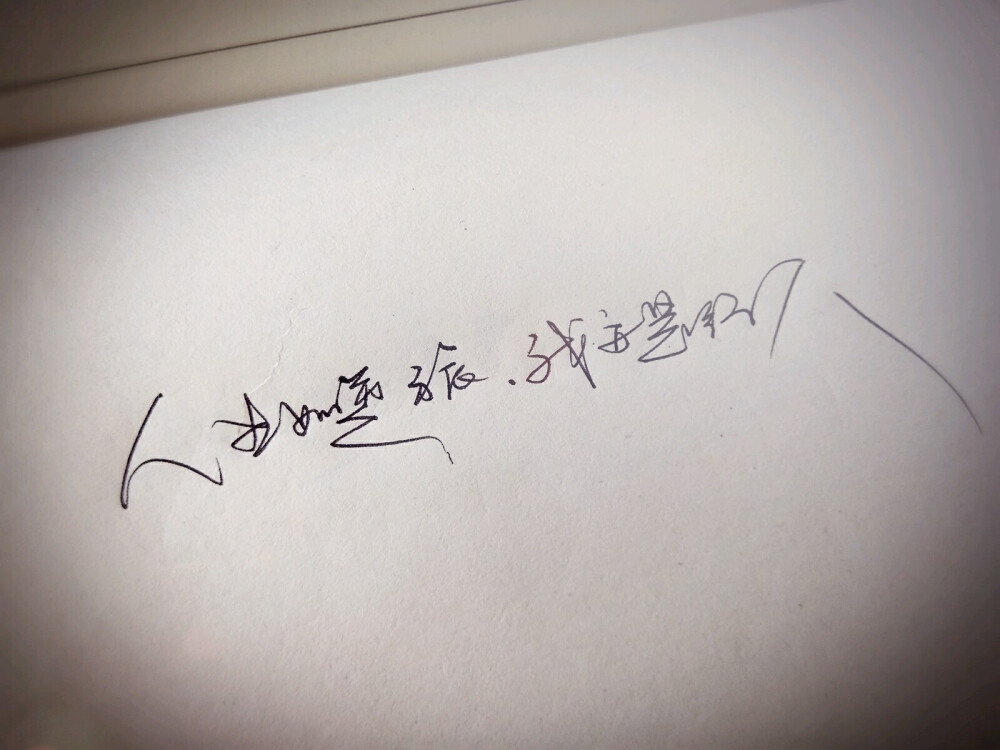 人生如逆旅,我亦是行人